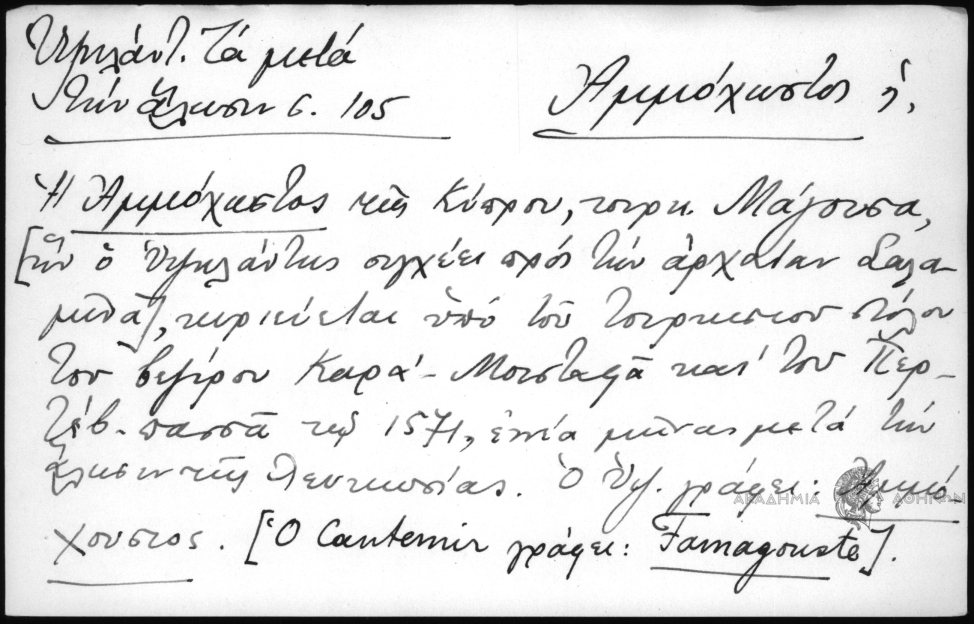 Ὑψηλάντ. Τά μετά
τήν ἅλωσιν σ. 105
Ἀμμόχωστος ἡ,
Ἡ Ἀμμόχωστος τῆς Κύπρου, τουρκ. Μάγουσα,
[ἥν ὁ Ὑψηλάντης συγχέει πρός τήν ἀρχαίαν Σαλα-
μῖνα], κυριεύεται ὑπό τοῦ τουρκικοῦ στόλου
τοῦ βεζίρου Καρά-Μουσταφᾶ καί τοῦ Περ-
τέβ-πασσᾶ τῷ 1571, ἐννέα μῆνας μετά τήν
ἅλωσιν τῆς Λευκωσίας. Ὁ Ὑψ. γράφει: Ἀμμό-
χουστος. [Ὁ Cantemir γράφει: Famagouste].
ΑΚΑΔΗΜΙΑ ΑΘΗΝΩΝ